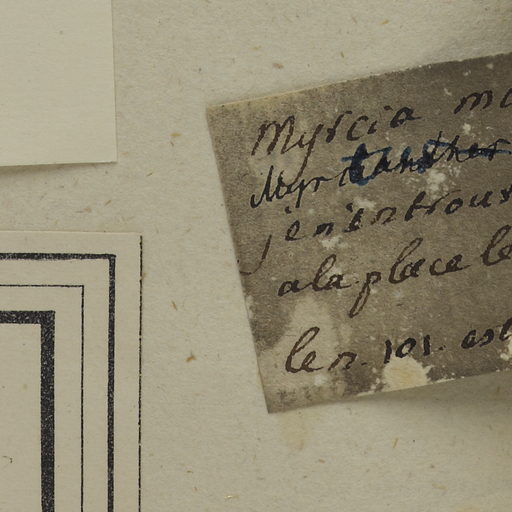 Myrcia ma
Myrtanther
je n'en trouv
a la place le
le n. 101. est